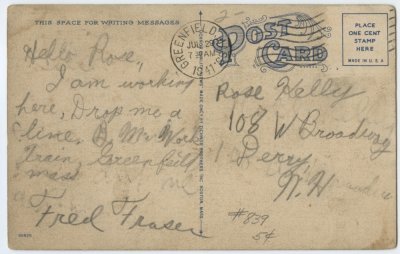 THIS SPACE FOR WRITING MESSAGES
Hello Rose,
I am working
here, Drop me a
line, B. M. Work
Train, Greenfield
mass
Fred Fraser
GREENFIELD
7 30 AM
1941
POST CARD
PLACE
ONE CENT
STAMP
HERE
MADE IN U.S.A.
Rose Kelly
108 W Broadway
Derry,
N. H
#839
5¢